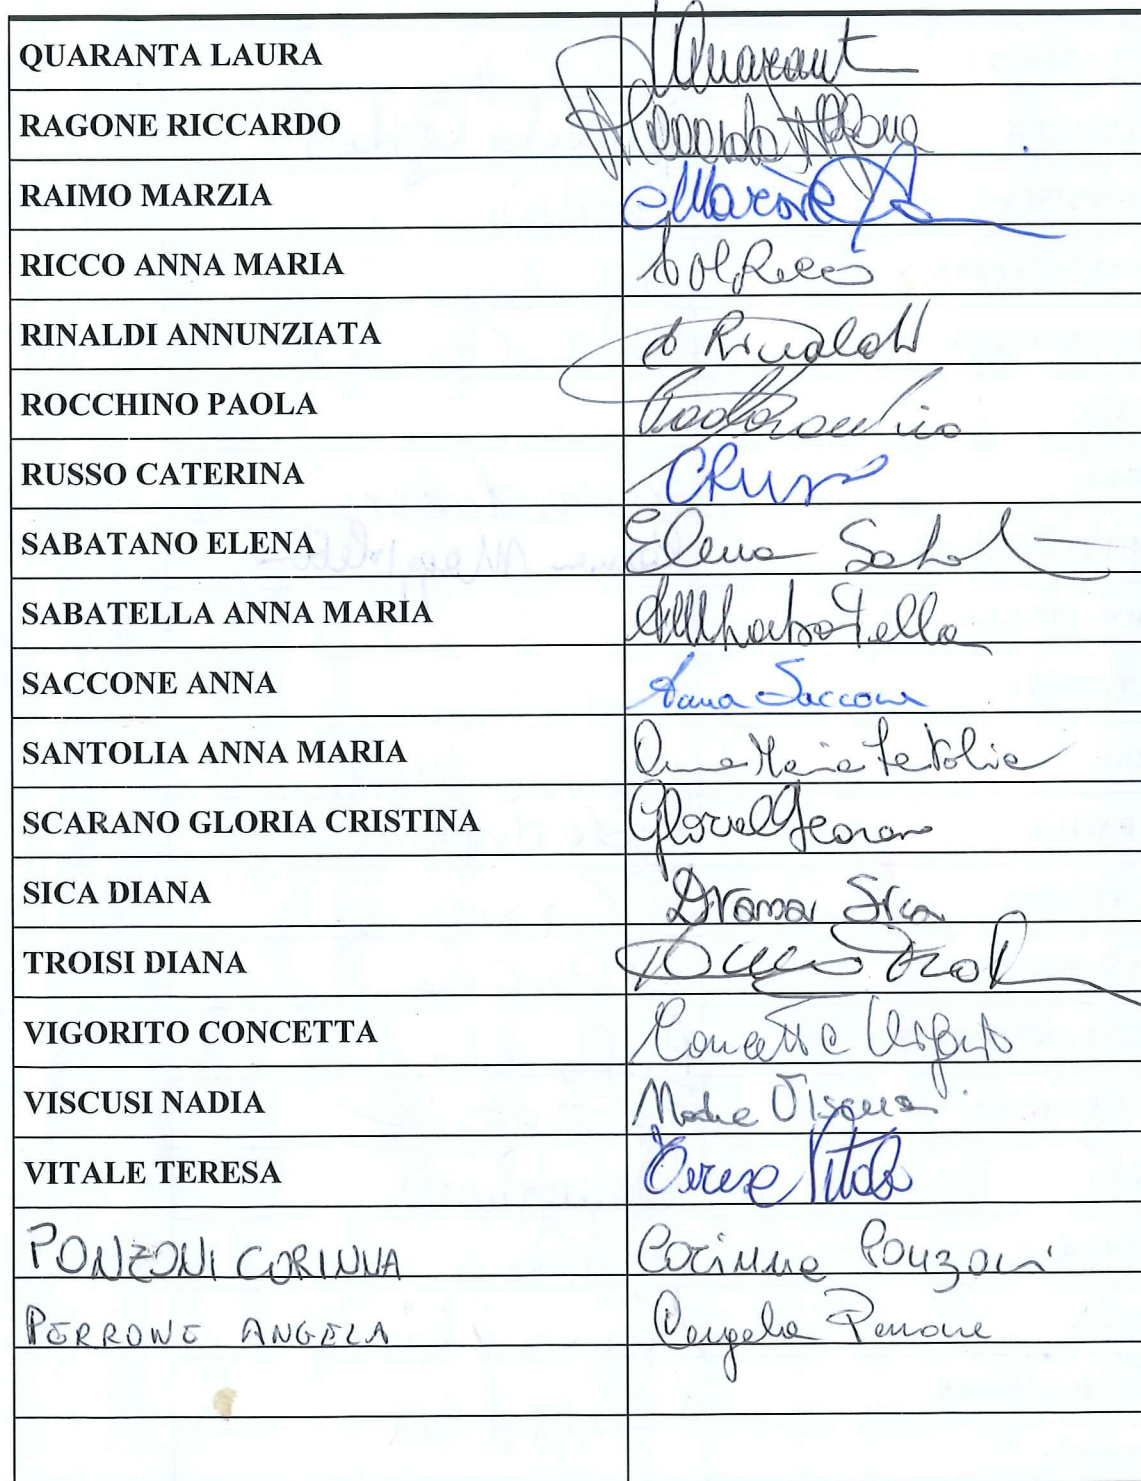 QUARANTA LAURA LQuarant
RAGONE RICCARDO Riccardo Ragone
RAIMO MARZIA Marzia
RICCO ANNA MARIA AM Ricco
RINALDI ANNUNZIATA A Rinaldi
ROCCHINO PAOLA Paola Rocchino
RUSSO CATERINA CRusso
SABATANO ELENA Elena Sabat
SABATELLA ANNA MARIA AMSabatella
SACCONE ANNA Anna Saccone
SANTOLIA ANNA MARIA Anna Maria Santolia
SCARANO GLORIA CRISTINA Gloria Scarano
SICA DIANA Diana Sica
TROISI DIANA
VIGORITO CONCETTA Concetta Vigorito
VISCUSI NADIA Nadia Viscusi
VITALE TERESA Teresa Vitale
PONZONI CORINNA Corinna Ponzoni
PERRONE ANGELA Angela Perrone